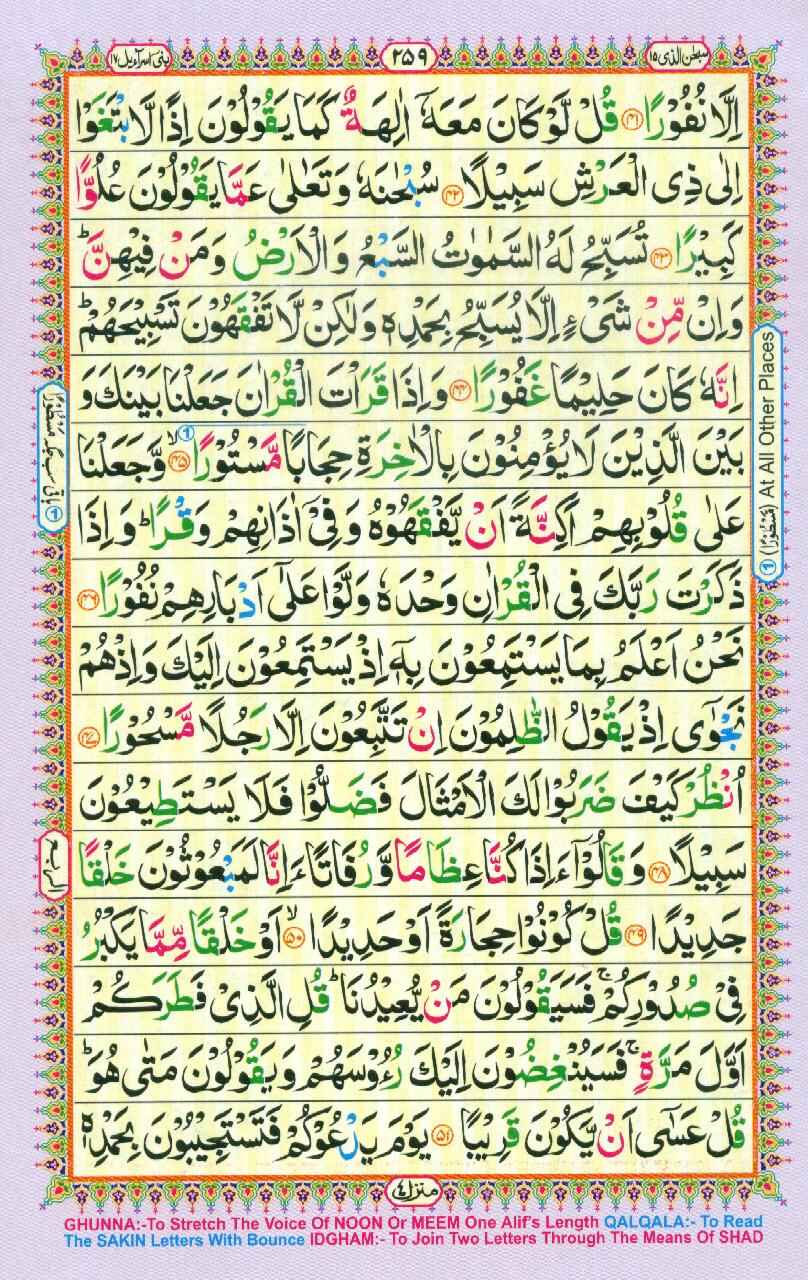 سبحٰن الذی ۱۵
۲۵۹
بنی اسرآءیل ۱۷
اِلَّا نُفُوْرًا ﴿۴۱﴾ قُلْ لَّوْ كَانَ مَعَهٗۤ اٰلِهَةٌ كَمَا یَقُوْلُوْنَ اِذًا لَّابْتَغَوْا
اِلٰى ذِی الْعَرْشِ سَبِیْلًا ﴿۴۲﴾ سُبْحٰنَهٗ وَ تَعٰلٰى عَمَّا یَقُوْلُوْنَ عُلُوًّا
كَبِیْرًا ﴿۴۳﴾ تُسَبِّحُ لَهُ السَّمٰوٰتُ السَّبْعُ وَ الْاَرْضُ وَ مَنْ فِیْهِنَّ ؕ
وَ اِنْ مِّنْ شَیْءٍ اِلَّا یُسَبِّحُ بِحَمْدِهٖ وَ لٰكِنْ لَّا تَفْقَهُوْنَ تَسْبِیْحَهُمْ ؕ
اِنَّهٗ كَانَ حَلِیْمًا غَفُوْرًا ﴿۴۴﴾ وَ اِذَا قَرَاْتَ الْقُرْاٰنَ جَعَلْنَا بَیْنَكَ وَ
بَیْنَ الَّذِیْنَ لَا یُؤْمِنُوْنَ بِالْاٰخِرَةِ حِجَابًا مَّسْتُوْرًا ﴿۴۵﴾ ۙ ① وَّ جَعَلْنَا
عَلٰى قُلُوْبِهِمْ اَكِنَّةً اَنْ یَّفْقَهُوْهُ وَ فِیْۤ اٰذَانِهِمْ وَقْرًا ؕ وَ اِذَا
ذَكَرْتَ رَبَّكَ فِی الْقُرْاٰنِ وَحْدَهٗ وَلَّوْا عَلٰۤى اَدْبَارِهِمْ نُفُوْرًا ﴿۴۶﴾
نَحْنُ اَعْلَمُ بِمَا یَسْتَمِعُوْنَ بِهٖۤ اِذْ یَسْتَمِعُوْنَ اِلَیْكَ وَ اِذْ هُمْ
نَجْوٰۤى اِذْ یَقُوْلُ الظّٰلِمُوْنَ اِنْ تَتَّبِعُوْنَ اِلَّا رَجُلًا مَّسْحُوْرًا ﴿۴۷﴾
اُنْظُرْ كَیْفَ ضَرَبُوْا لَكَ الْاَمْثَالَ فَضَلُّوْا فَلَا یَسْتَطِیْعُوْنَ
سَبِیْلًا ﴿۴۸﴾ وَ قَالُوْۤا ءَاِذَا كُنَّا عِظَامًا وَّ رُفَاتًا ءَاِنَّا لَمَبْعُوْثُوْنَ خَلْقًا
جَدِیْدًا ﴿۴۹﴾ قُلْ كُوْنُوْا حِجَارَةً اَوْ حَدِیْدًا ﴿۵۰﴾ ۙ اَوْ خَلْقًا مِّمَّا یَكْبُرُ
فِیْ صُدُوْرِكُمْ ۚ فَسَیَقُوْلُوْنَ مَنْ یُّعِیْدُنَا ؕ قُلِ الَّذِیْ فَطَرَكُمْ
اَوَّلَ مَرَّةٍ ۚ فَسَیُنْغِضُوْنَ اِلَیْكَ رُءُوْسَهُمْ وَ یَقُوْلُوْنَ مَتٰى هُوَ ؕ
قُلْ عَسٰۤى اَنْ یَّكُوْنَ قَرِیْبًا ﴿۵۱﴾ یَوْمَ یَدْعُوْكُمْ فَتَسْتَجِیْبُوْنَ بِحَمْدِهٖ
① (مَّسْطُوْرًا) At All Other Places
① باقی سب جگہ مَسْطُوْرًا
الربع
منزل ۴
GHUNNA:-To Stretch The Voice Of NOON Or MEEM One Alif's Length QALQALA:- To Read
The SAKIN Letters With Bounce IDGHAM:- To Join Two Letters Through The Means Of SHAD